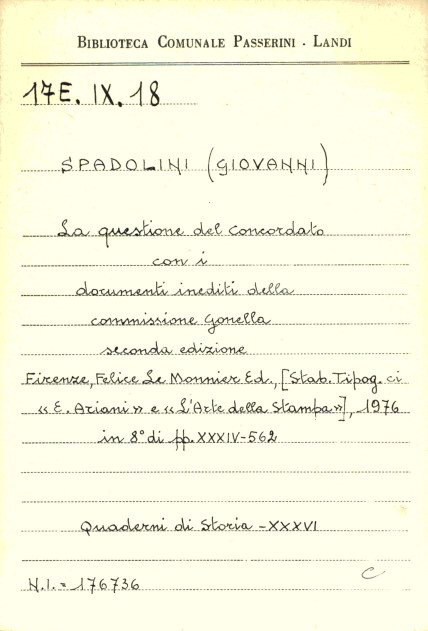 BIBLIOTECA COMUNALE PASSERINI - LANDI
17E. IX. 18
SPADOLINI (GIOVANNI)
La questione del concordato
con i
documenti inediti della
commissione Gonella
seconda edizione
Firenze, Felice Le Monnier Ed., [Stab. Tipog. ci
«E. Ariani» e «L'Arte della Stampa»], 1976
in 8° di pp. XXXIV-562
Quaderni di Storia - XXXVI
N.I. = 176736
C